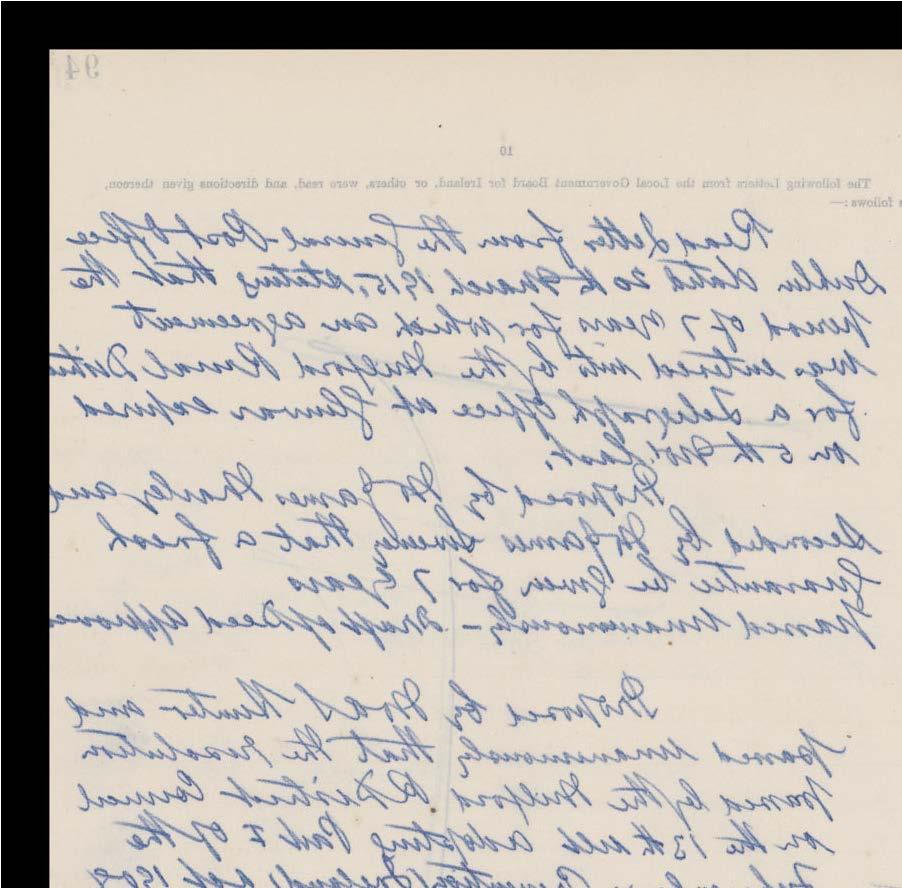 94
10
The following Letters from the Local Government Board for Ireland, or others, were read, and directions given thereon,
s follows:—
Read letter from the General Post Office
Dublin dated 20th March 1915, stating that the
period of 7 years for which an agreement
was entered into by the Milford Rural Distric
for a Telegraph Office at Glenvar expired
on 5th Nov. last.
Proposed by Mr James and
Seconded by Mr James Sweeney that a fresh
Guarantee be given for 7 years
passed unanimously – Draft of Deed Approve
Proposed by Hunter and
passed unanimously that the resolution
passed by the Milford R District Council
on the 13th adopting Part I of the
Prevention (Ireland) Act 1908